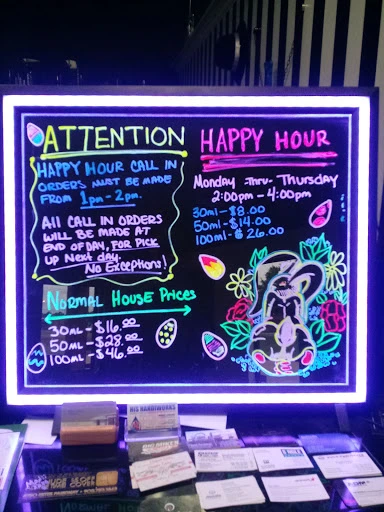 ATTENTION
HAPPY HOUR CALL IN
ORDERS MUST BE MADE
FROM 1pm - 2pm.
All CALL IN ORDERS
WILL BE MADE AT
END OF DAY, FOR PICK
UP Next day.
No Exceptions!
Normal House Prices
30ml - $16.00
50ml - $28.00
100ml - $46.00
HAPPY HOUR
Monday -Thru- Thursday
2:00pm - 4:00pm
30ml - $8.00
50ml - $14.00
100ml - $26.00